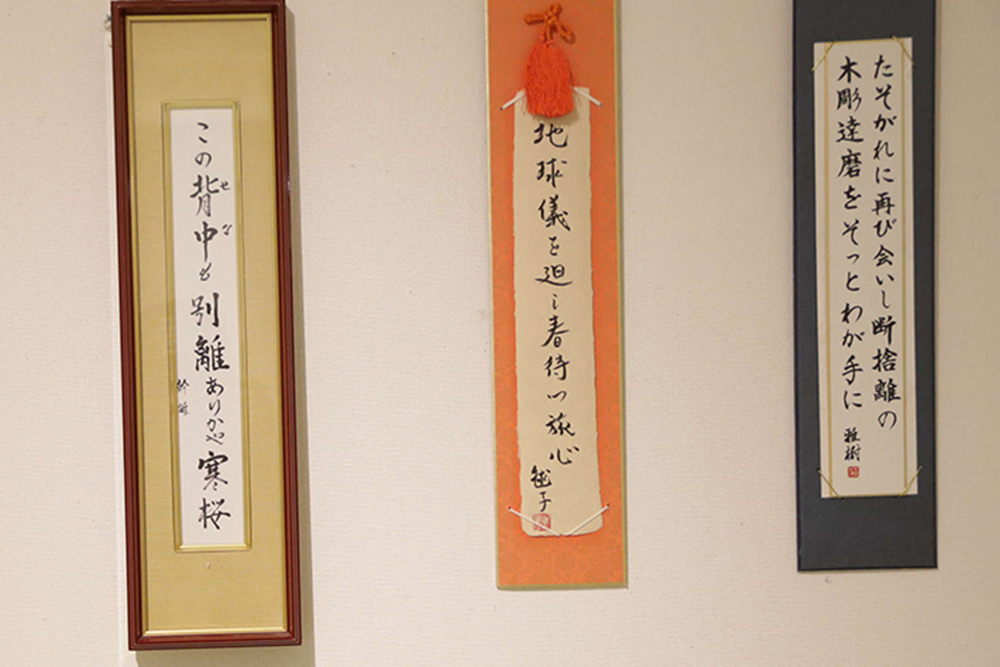 たそがれに再び会いし断捨離の
木彫達磨をそっとわが手に
雅樹
地球儀を廻し春待つ旅心
この背中も別離ありかや寒桜
せな